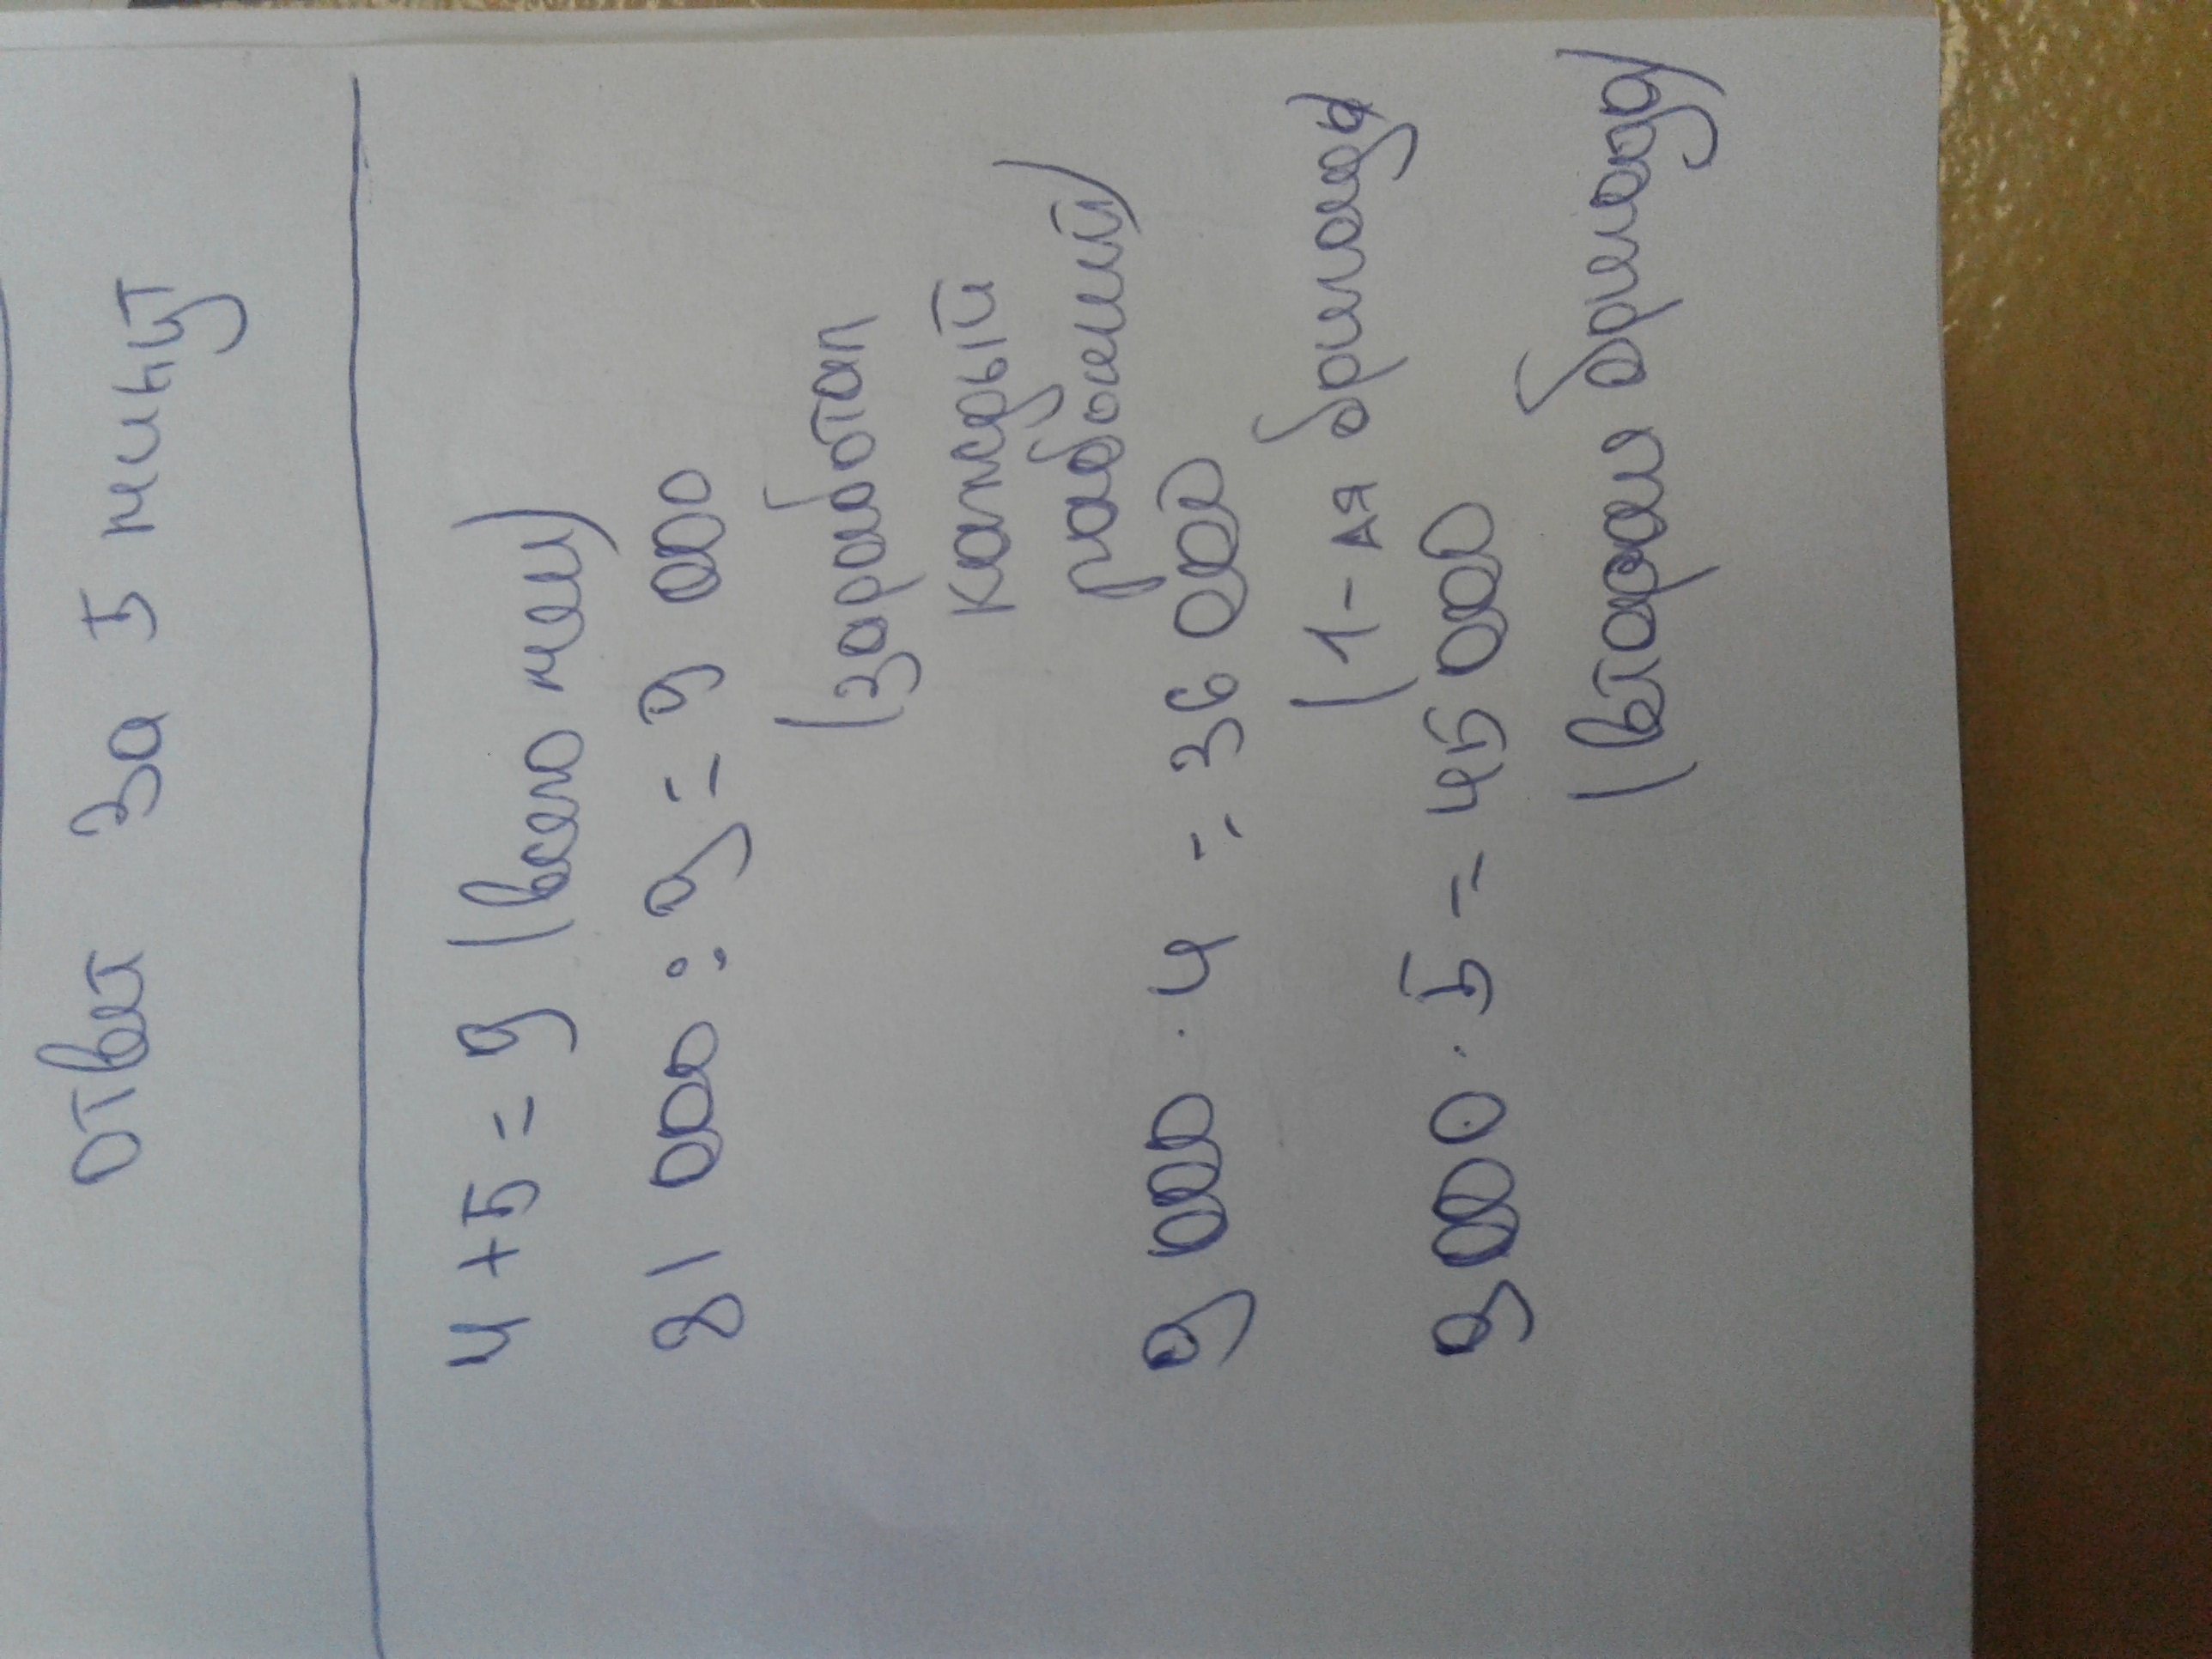 ответ за 5 минут
4 + 5 = 9 (всего чел)
81 000 : 9 = 9 000
(заработал
каждый
рабочий)
9 000 · 4 = 36 000
(1-ая бригада)
9 000 · 5 = 45 000
(вторая бригада)